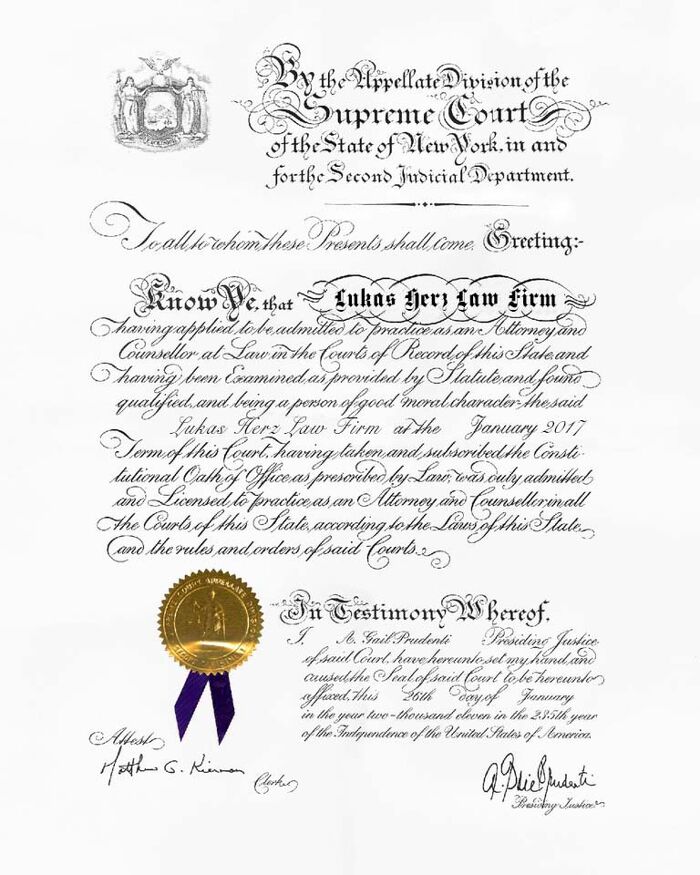 By the Appellate Division of the
Supreme Court
of the State of New York, in and
for the Second Judicial Department.
To all to whom these Presents shall come, Greeting:-
Know Ye, that Lukas Herz Law Firm
having applied to be admitted to practice as an Attorney and
Counsellor at Law in the Courts of Record of this State, and
having been Examined, as provided by Statute, and found
qualified, and being a person of good moral character, the said
Lukas Herz Law Firm at the January 2017
Term of this Court, having taken and subscribed the Consti-
tutional Oath of Office as prescribed by Law, was duly admitted
and Licensed to practice as an Attorney and Counsellor in all
the Courts of this State, according to the Laws of this State
and the rules and orders of said Courts.
In Testimony Whereof,
I, A. Gail Prudenti Presiding Justice
of said Court, have hereunto set my hand, and
caused the Seal of said Court to be hereunto
affixed, this 26th day of January
in the year two-thousand eleven in the 235th year
of the Independence of the United States of America.
Attest
Matthew G. Kiernan
Clerk
Presiding Justice